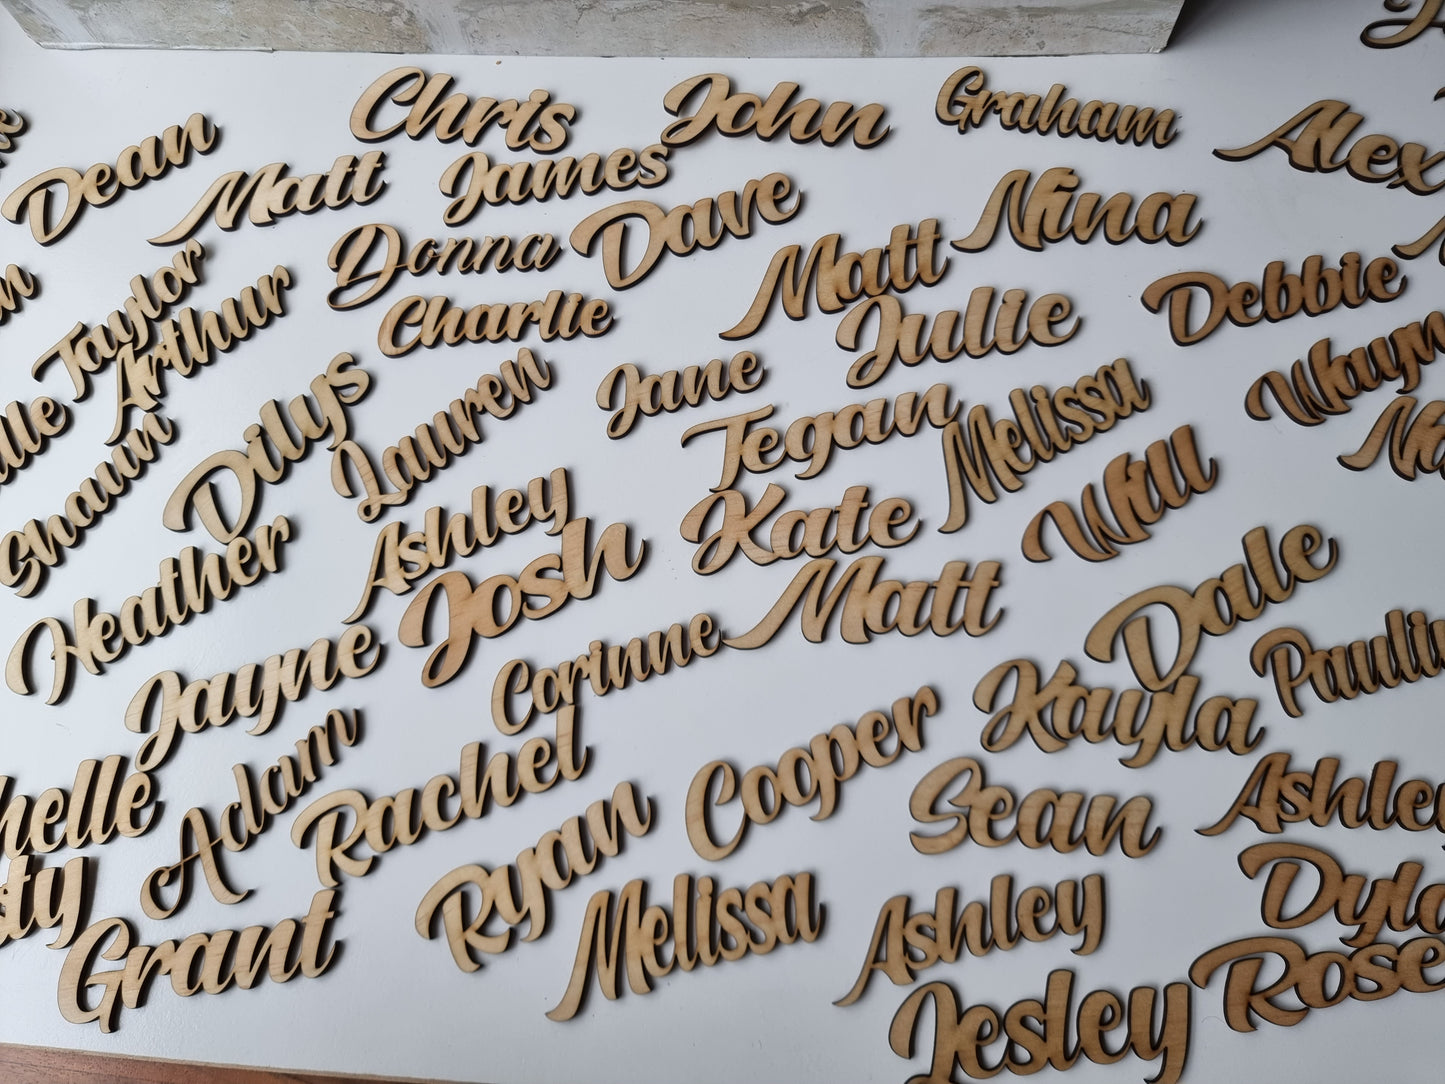 Chris
John
Graham
Alex
Dean
Matt
James
Dave
Nina
Donna
Matt
Taylor
Arthur
Charlie
Julie
Debbie
Jane
Dilys
Lauren
Tegan
Melissa
Shaun
Ashley
Kate
Will
Heather
Josh
Matt
Dale
Jayne
Corinne
Kayla
Adam
Rachel
Cooper
Sean
Ashley
Ryan
Grant
Melissa
Ashley
Rose
Lesley